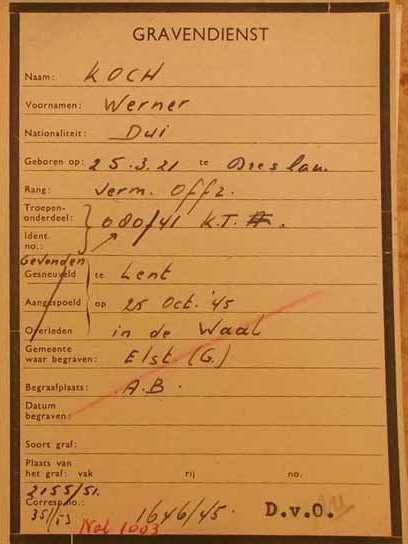 GRAVENDIENST
Naam: KOCH
Voornamen: Werner
Nationaliteit: Dui
Geboren op: 25.3.21 te Breslau.
Rang: Verm. Offz.
Troepen-
onderdeel: 080/41 K.T.
Ident.
no.:
Gevonden
Gesneuveld te Lent
Aangespoeld op 25 Oct. '45
Overleden in de Waal
Gemeente
waar begraven: Elst. (G.)
Begraafplaats: A.B.
Datum
begraven:
Soort graf:
Plaats van
het graf: vak rij no.
2155/51.
Corresp.no.: 1646/45 D.v.O.
351/53 Nol 1003